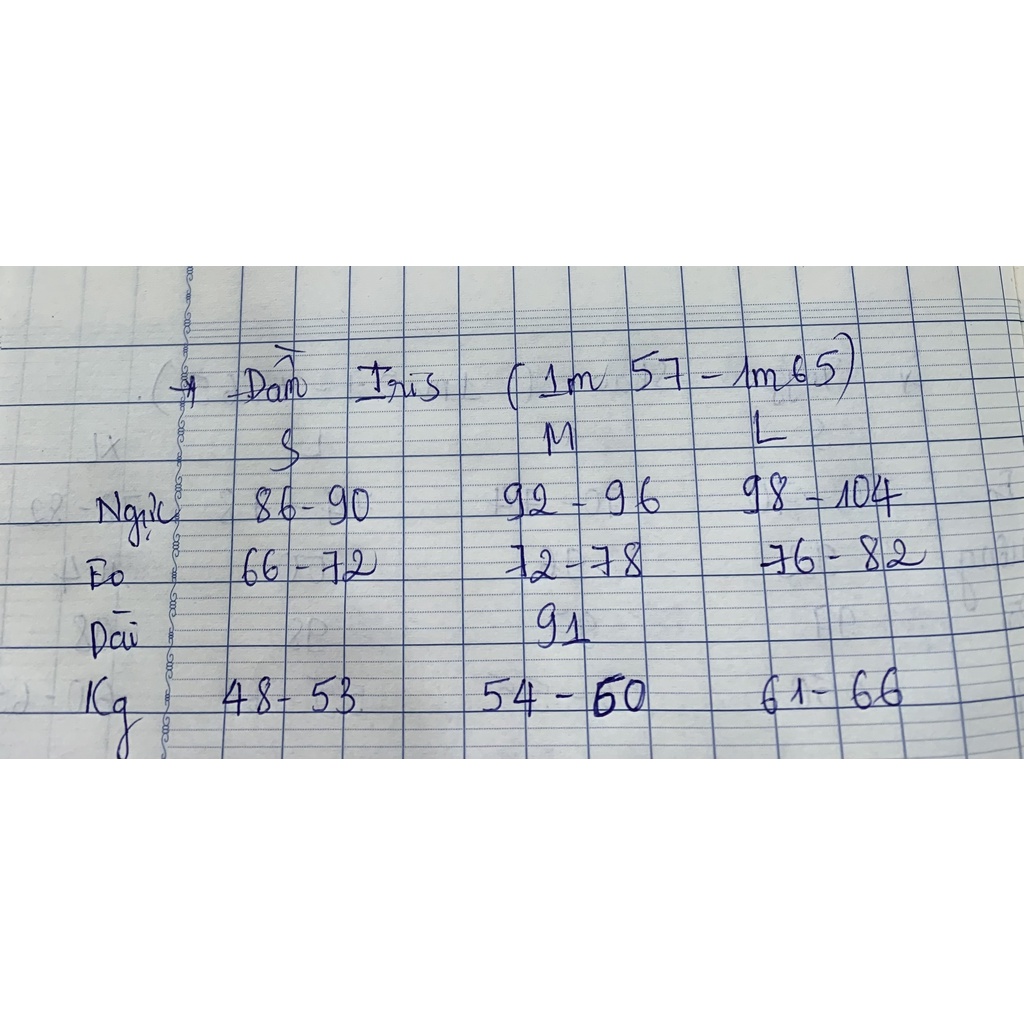 → Đầm Iris (1m 57 - 1m65)
S M L
Ngực 86-90 92-96 98-104
Eo 66-72 72-78 76-82
Dài 91
Kg 48-53 54-60 61-66